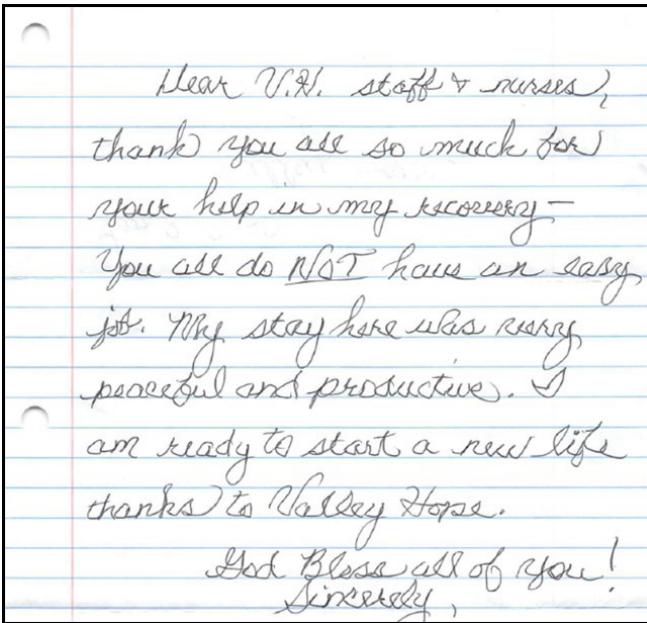 Dear V.H. staff & nurses,
thank you all so much for
your help in my recovery –
You all do NOT have an easy
job. My stay here was very
peaceful and productive. I
am ready to start a new life
thanks to Valley Hope.
God Bless all of you!
Sincerely,